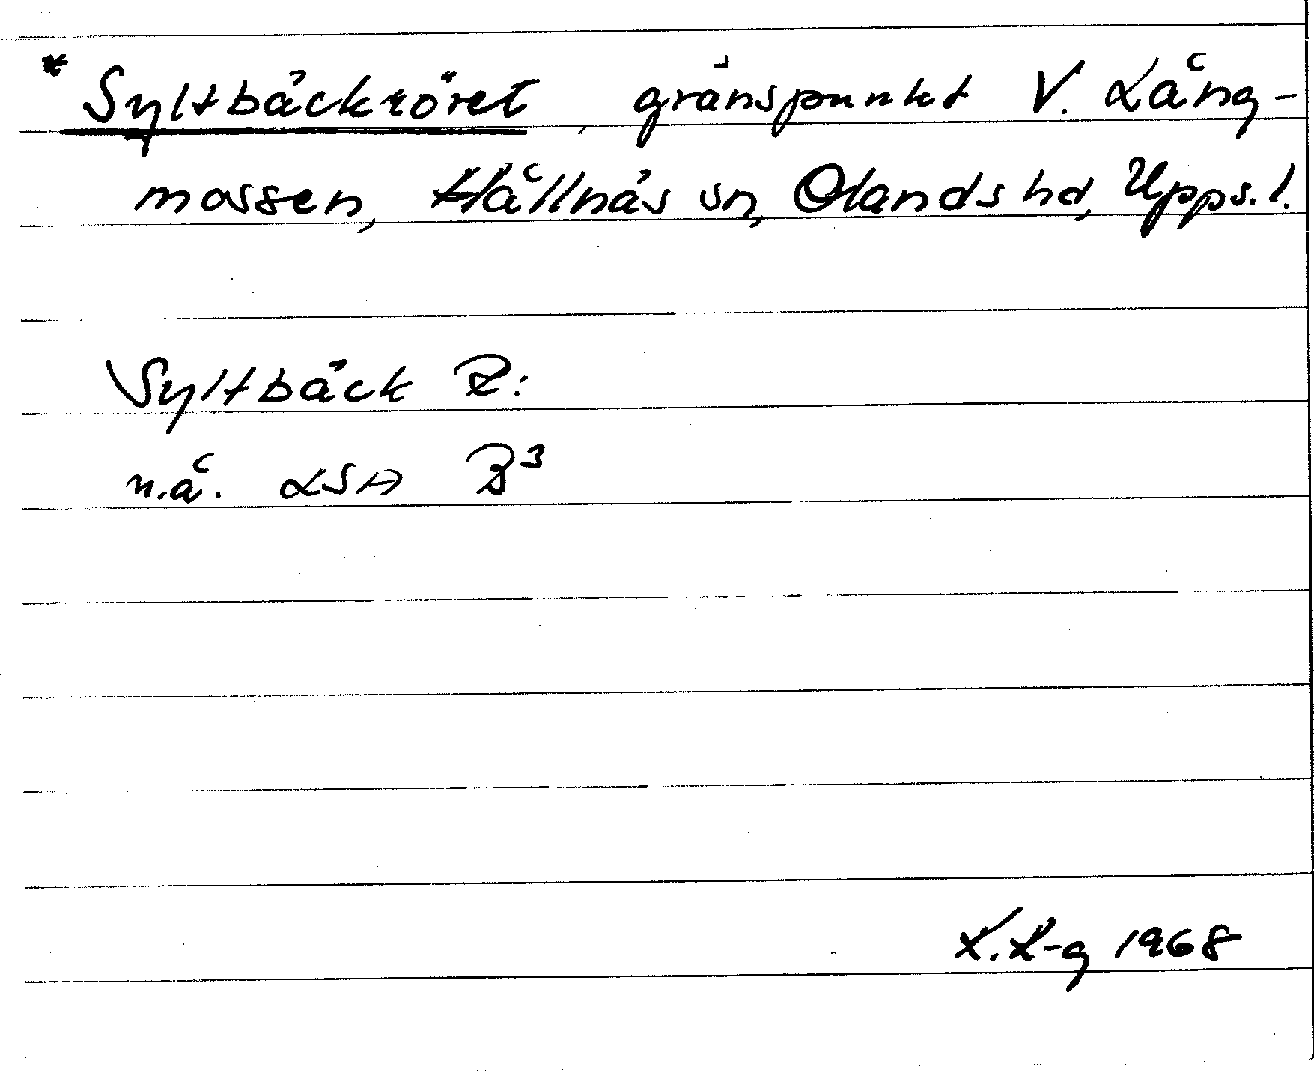 * Syltbäckröret, gränspunkt V. Lång-
mossen, Hållnäs sn, Olands hd, Upps. l.
Syltbäck R:
n.å. LSA B³
K.L-g 1968